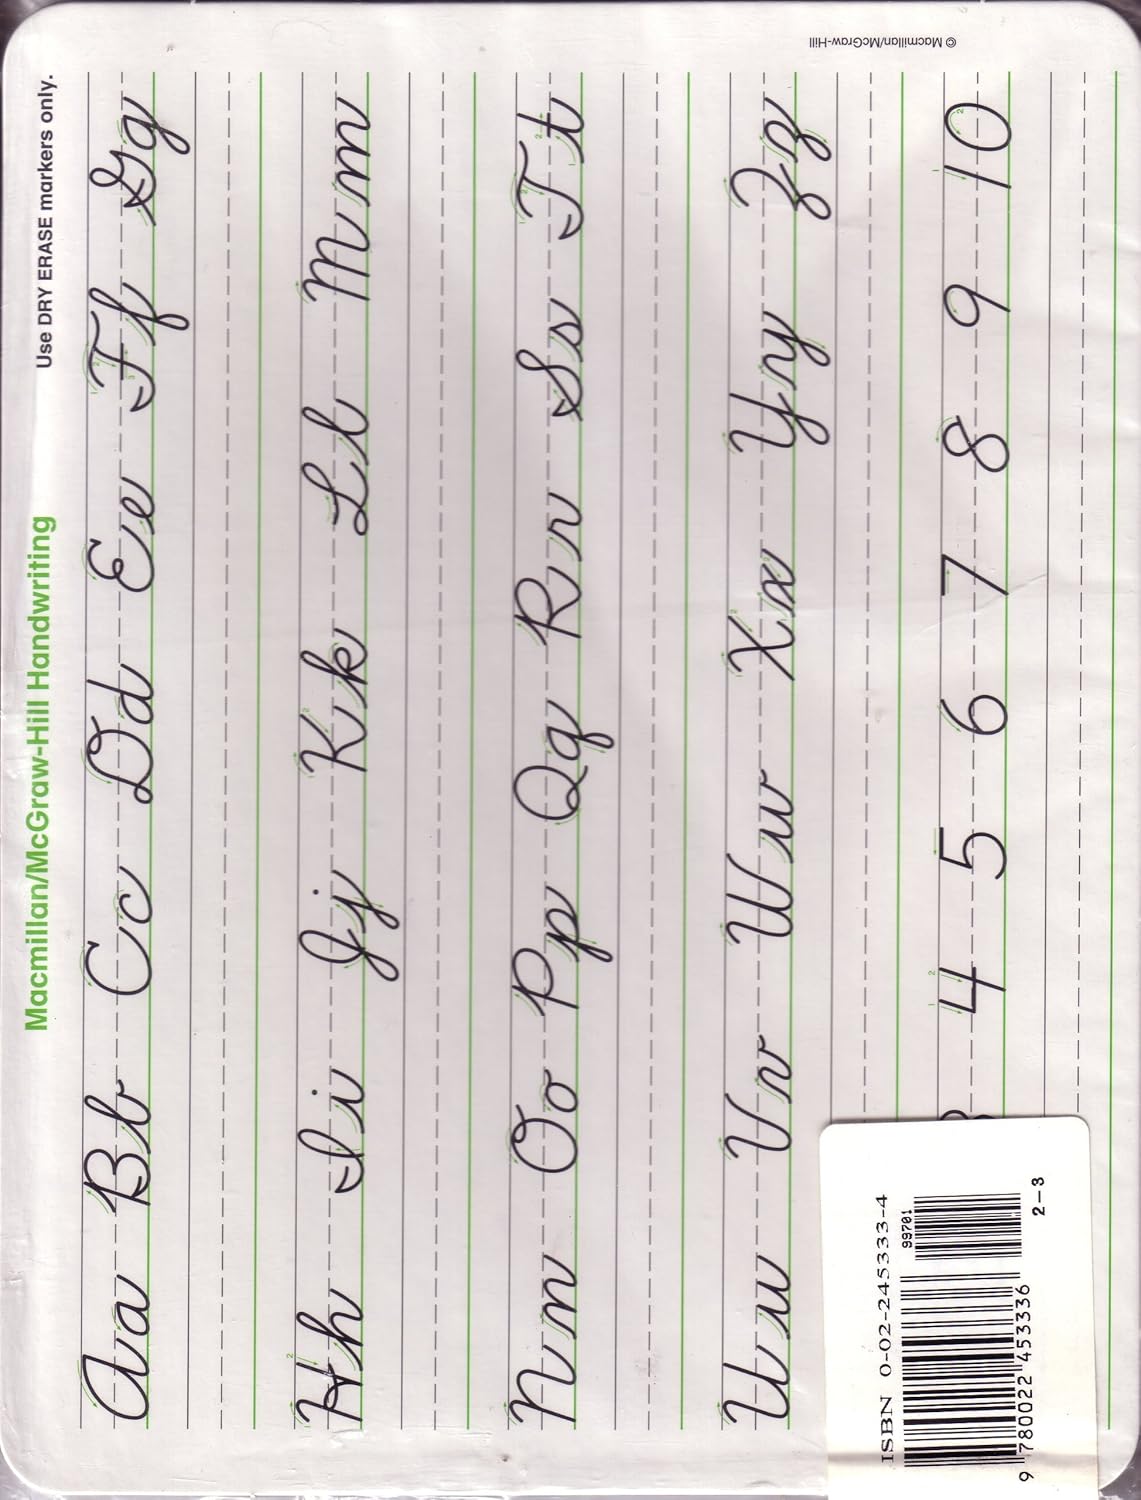 Macmillan/McGraw-Hill Handwriting
Use DRY ERASE markers only.
Aa Bb Cc Dd Ee Ff Gg
Hh Ii Jj Kk Ll Mm
Nn Oo Pp Qq Rr Ss Tt
Uu Vv Ww Xx Yy Zz
4 5 6 7 8 9 10
ISBN 0-02-245333-4
99701
9 780022 453336
2-3
© Macmillan/McGraw-Hill